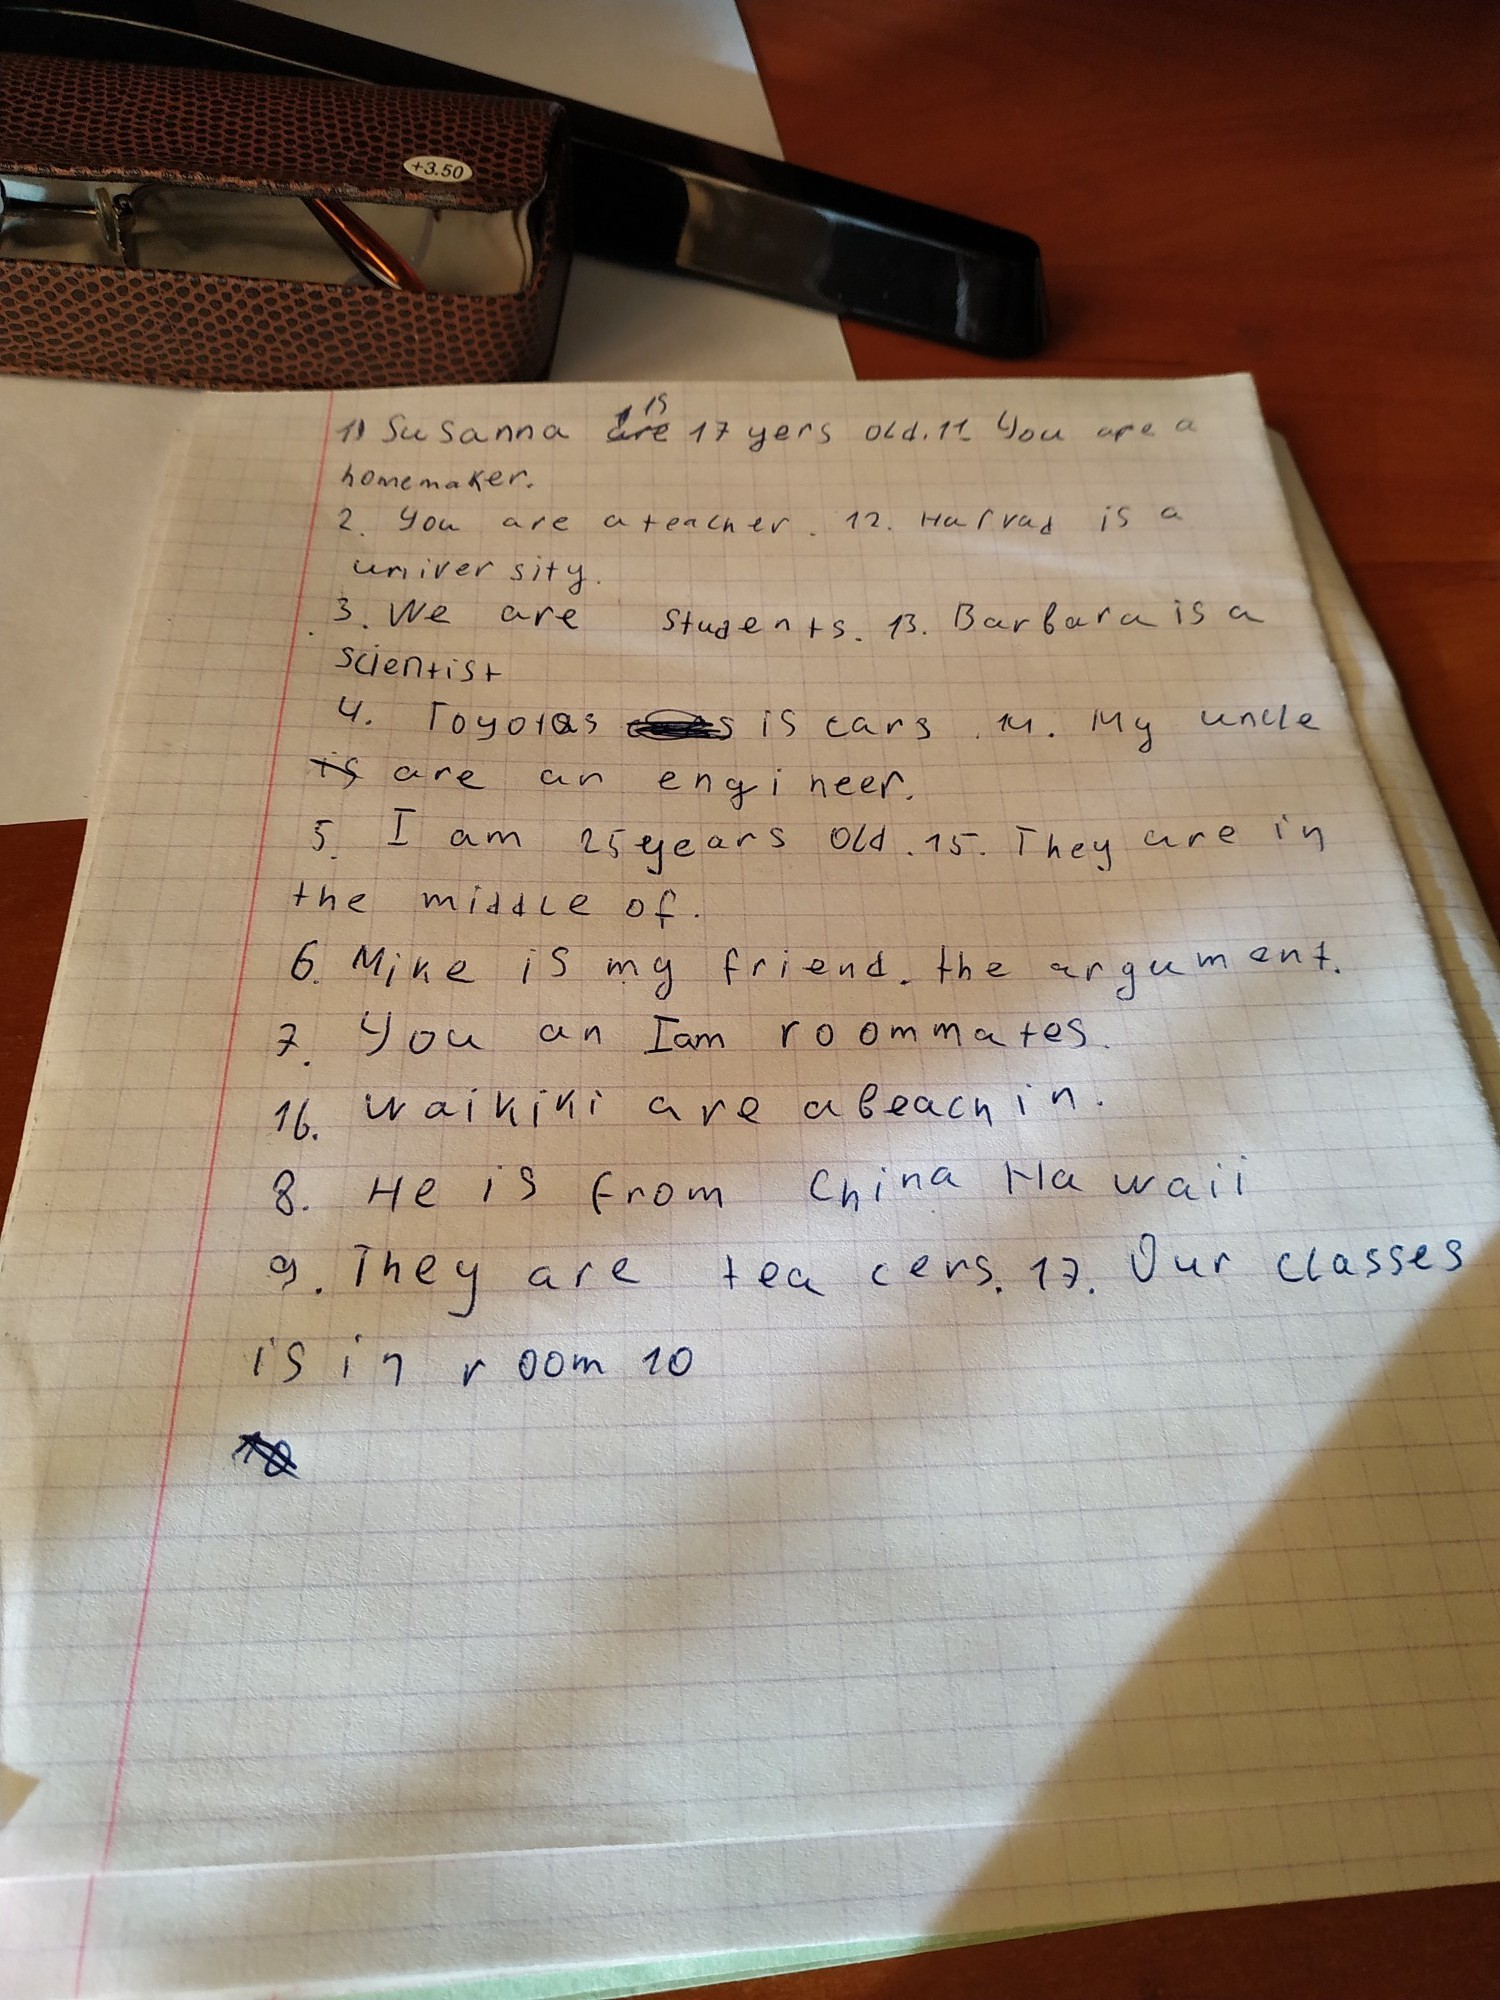 +3.50
1) Susanna is 17 yers old. 11. You are a
homemaker.
2. You are a teacher. 12. Harvad is a
university.
3. We are students. 13. Barbara is a
scientist
4. Toyotas is cars. 14. My uncle
are an engineer.
5. I am 25 years old. 15. They are in
the middle of.
6. Mike is my friend. the argument.
7. You an I am roommates.
16. Waikiki are a beach in.
8. He is from China Hawaii
9. They are teacers. 17. Our classes
is in room 10